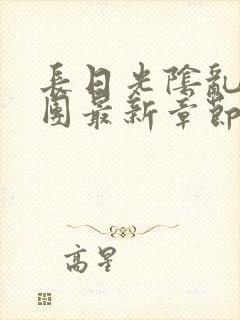 長日光陰亂
團最新章節
高星